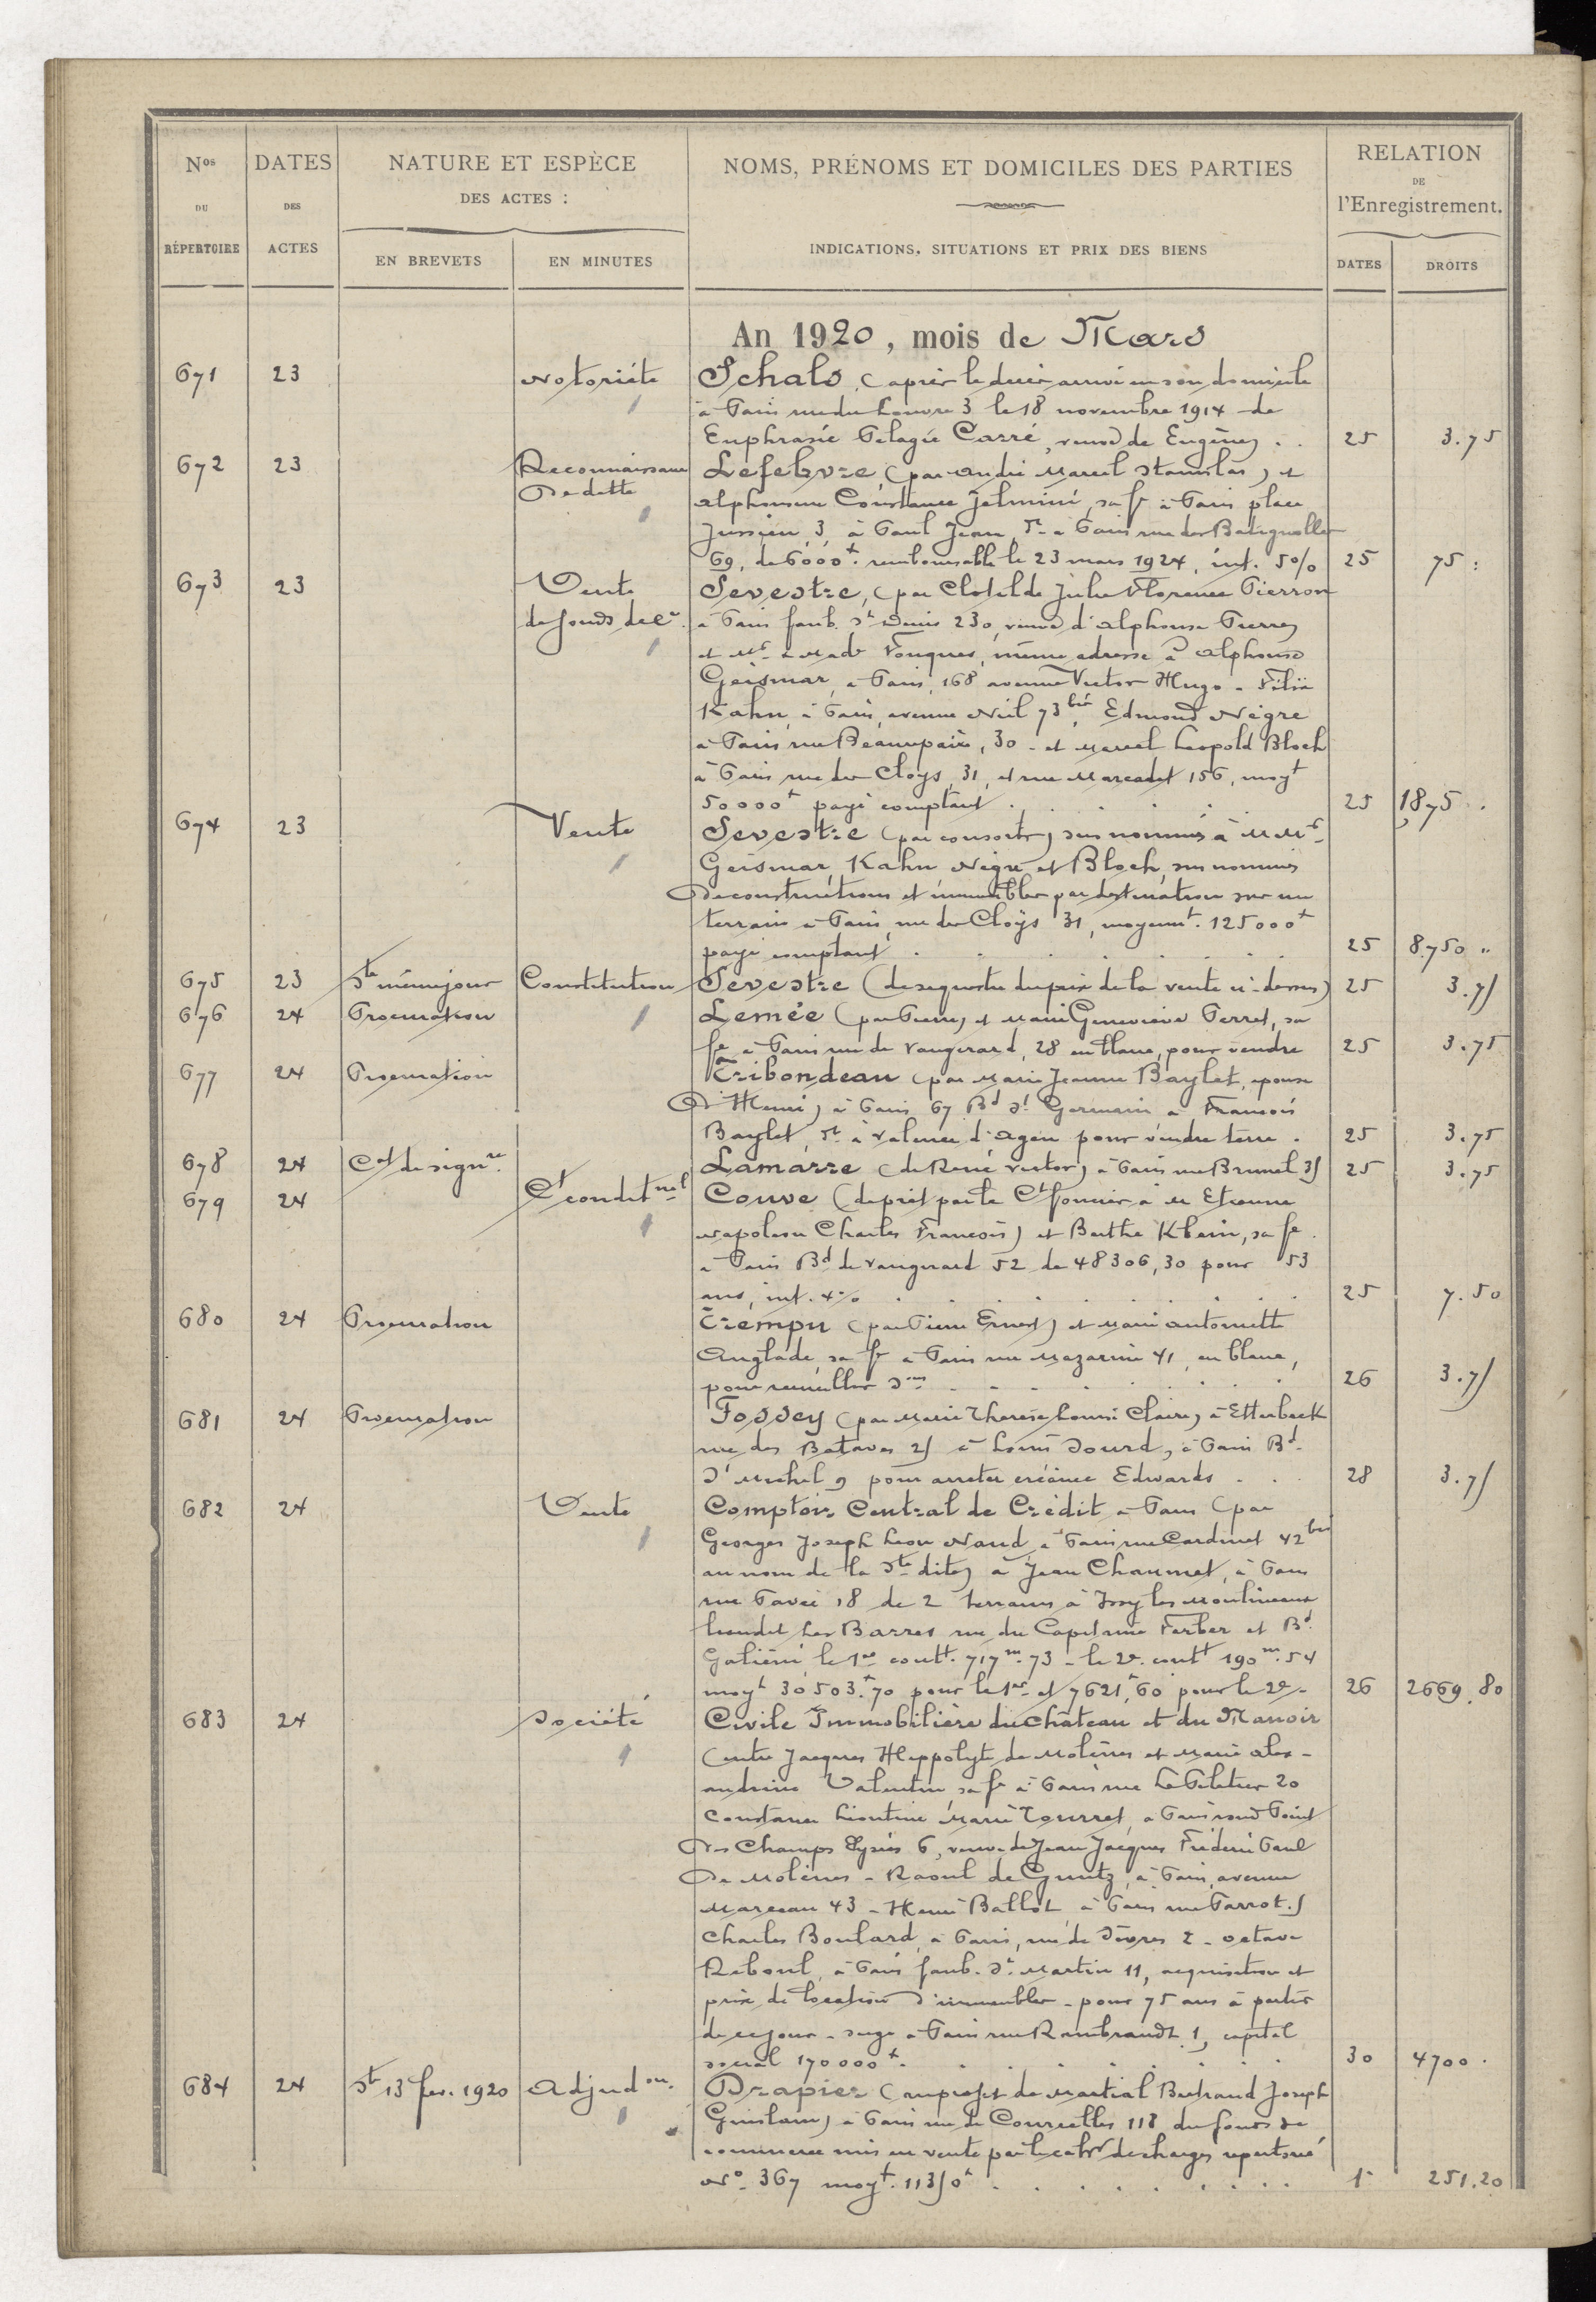 Nos DU RÉPERTOIRE
DATES DES ACTES
NATURE ET ESPÈCE DES ACTES :
EN BREVETS
EN MINUTES
NOMS, PRÉNOMS ET DOMICILES DES PARTIES
INDICATIONS, SITUATIONS ET PRIX DES BIENS
RELATION DE l'Enregistrement.
DATES
DROITS
An 1920, mois de Mars
671 23 Notoriété Schals (après le décès arrivé en son domicile
à Paris rue du Louvre 3 le 18 novembre 1914 de
Euphrasie Pelagie Carré, veuve de Eugène) . . 25 3.75
672 23 Reconnaissance Lefebvre (par André Marcel Stanislas) et
de dette Alphonsine Constance Jelmini, sa fe à Paris place
Jussieu, 3, à Paul Jean, dt à Paris rue des Batignolles
69, de 6000f. remboursable le 23 mars 1924, int. 5% 25 75 :
673 23 Vente Sevestre, (par Clotilde Julie Florence Pierron
de fonds de Ce. à Paris faub. St Denis 230, veuve d'Alphonse Pierre)
et Mr & Made Fouques, même adresse à Alphonse
Geismar, à Paris, 168 avenue Victor Hugo - Félix
Kahn, à Paris, avenue Niel 73 bis, Edmond Nègre
à Paris rue Beaurepaire, 30 - et Marcel Léopold Bloch
à Paris rue des Cloys, 31, et rue Marcadet 156, moyt
50000f payé comptant . . . . 25 1875 .
674 23 Vente Sevestre (par consorts) sus nommés à MMrs
Geismar, Kahn, Nègre et Bloch, sus nommés
de constructions et immeubles par destination sur un
terrain à Paris, rue des Cloys 31, moyennt. 125000f
payé comptant . . . . 25 8.750 "
675 23 St même jour Constitution Sevestre (de sequestre du prix de la vente ci-dessus) 25 3.75
676 24 Procuration Lemée (par Pierre) et Marie Geneviève Perret, sa
fe à Paris rue de Vaugirard, 28 en blanc, pour vendre 25 3.75
677 24 Procuration Tribondeau (par Marie Jeanne Baylet, épouse
d'Henri) à Paris 67 Bd St Germain à François
Baylet, dt à Valence d'Agen pour vendre terre . 25 3.75
678 24 Cat de signre. Lamarre (de René Victor) à Paris rue Brunel 35 25 3.75
679 24 Ct conditnel Couve (de prêt par le Ct foncier à M Etienne
Napoléon Charles François) et Berthe Klein, sa fe.
à Paris Bd de Vaugirard 52 de 48306,30 pour 53
ans, int. 4% . . . . 25 7.50
680 24 Procuration Trempu (par Pierre Ernest) et Marie Antoinette
Anglade, sa fe à Paris rue Mazarine 41, en blanc,
pour recueillir sons . . . . 26 3.75
681 24 Procuration Fossey (par Marie Thérèse Louise Claire) à Etterbeck
rue des Bataves 25 à Louis Sourd, à Paris Bd
St Michel 9 pour arrêter créance Edwards . . . 28 3.75
682 24 Vente Comptoir Central de Crédit à Paris (par
Georges Joseph Léon Naud, à Paris rue Cardinet 42 bis
au nom de la Sté dite) à Jean Chaumet, à Paris
rue Pavée 18 de 2 terrains à Issy les Moulineaux
lieudit Les Barres rue du Capitaine Ferber et Bd.
Galiéni, le 1er contt. 717m.73 - le 2e. contt 190m.54
moyt 30503.f70 pour le 1er et 7621f,60 pour le 2e- 26 2669.80
683 24 Société Civile Immobilière du Château et du Manoir
(entre Jacques Hippolyte de Molènes et Marie Alex-
andrine Valentin, sa fe à Paris rue Le Peletier 20
Constance Léontine Marie Tourret, à Paris rond Point
des Champs Elysées 6, veuve de Jean Jacques Frédéric Paul
de Molènes - Raoul de Gmitz, à Paris, avenue
Marceau 43 - Henri Ballot, à Paris rue Parrot. 5
Charles Boulard, à Paris, rue de Sèvres 2 - Octave
Reboul, à Paris faub. St Martin 11, acquisition et
prise de location d'immeubles - pour 75 ans à partir
de ce jour - siège à Paris rue Rembrandt 1, capital
social 170000f. . . . . 30 4700 .
684 24 St 13 fev. 1920 Adjudon. Drapier (au profit de Martial Bertrand Joseph
Guislain) à Paris rue de Courcelles 118 du fonds de
commerce mis en vente par le cahr des charges répertorié
No 367 moyt. 11350f . . . . 1er 251.20